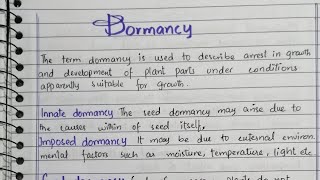 Dormancy
The term dormancy is used to describe arrest in growth
and development of plant parts under conditions
apparently suitable for growth.
Innate dormancy The seed dormancy may arise due to
the causes within of seed itself,
Imposed dormancy It may be due to external environ
mental factors such as moisture, temperature, light etc